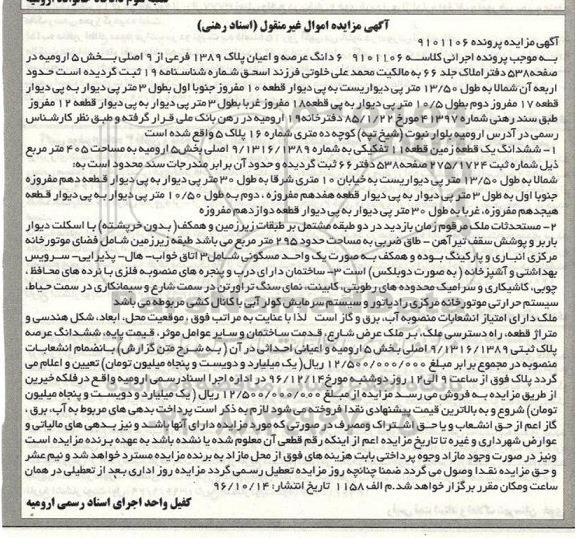 آگهی مزایده اموال غیرمنقول (اسناد رهنی)
آگهی مزایده پرونده ۹۱۰۱۱۰۶
به موجب پرونده اجرائی کلاسه ۹۱۰۱۱۰۶ ۶ دانگ عرصه و اعیان پلاک ۱۳۸۹ فرعی از ۹ اصلی بخش ۵ ارومیه در
صفحه ۵۳۸ دفتر املاک جلد ۶۶ به مالکیت محمد علی خلوتی فرزند اسحق شماره شناسنامه ۱۹ ثبت گردیده است حدود
اربعه آن شمالا به طول ۱۳/۵۰ متر پی دیواریست به پی دیوار قطعه ۱۰ مفروز جنوبا اول بطول ۳ متر پی دیوار به پی دیوار
قطعه ۱۷ مفروز دوم بطول ۱۰/۵ متر پی دیوار به پی دیوار قطعه ۱۸ مفروز غربا بطول ۳۰ متر پی دیوار به پی دیوار قطعه ۱۲ مفروز
طبق سند رهنی شماره ۴۱۳۹۷ مورخ ۸۵/۱/۲۲ دفترخانه ۱۹ ارومیه در رهن بانک ملی قرار گرفته و طبق نظر کارشناس
رسمی در آدرس ارومیه بلوار نبوت (شیخ تپه) کوچه ده متری شماره ۱۶ پلاک ۵ واقع شده است
۱- ششدانگ یک قطعه زمین قطعه ۱۱ تفکیکی به شماره ۹/۱۳۱۶/۱۳۸۹ اصلی بخش ۵ ارومیه به مساحت ۴۰۵ متر مربع
ذیل شماره ثبت ۲۷۵۶۱۷۲۴ صفحه ۵۳۸ دفتر ۶۶ ثبت گردیده و حدود آن برابر مندرجات سند محدود است به:
شمالا به طول ۱۳/۵۰ متر پی دیواریست به خیابان ۱۰ متری شرقا به طول ۳۰ متر پی دیوار به پی دیوار قطعه دهم مفروزه
جنوبا اول به طول ۳ متر پی دیوار به پی دیوار قطعه هفدهم مفروزه ، دوم به طول ۱۰/۵۰ متر پی دیوار به پی دیوار قطعه
هیجدهم مفروزه، غربا به طول ۳۰ متر پی دیوار به پی دیوار قطعه دوازدهم مفروزه
۲- مستحدثات ملک مرقوم زمان بازدید در دو طبقه مشتمل بر طبقات زیرزمین و همکف( بدون خرپشته) با اسکلت دیوار
باربر و پوشش سقف تیرآهن - طاق ضربی به مساحت حدود ۲۹۵ متر مربع می باشد طبقه زیرزمین شامل فضای موتورخانه
مرکزی انباری و پارکینگ بوده و همکف به صورت یک واحد مسکونی شامل ۳ اتاق خواب- هال- پذیرایی- سرویس
بهداشتی و آشپزخانه ( به صورت دوبلکس) است ۳- ساختمان دارای درب و پنجره های منصوبه فلزی با نرده های محافظ ،
چوبی، کاشیکاری و سرامیک محدوده های رطوبتی، کابینت، نمای سنگ تراورتن در سمت شارع و سیمانکاری در سمت حیاط،
سیستم حرارتی موتورخانه مرکزی رادیاتور و سیستم سرمایش کولر آبی با کانال کشی مربوطه می باشد
ملک دارای امتیاز انشعابات منصوبه آب، برق و گاز است لذا با عنایت به مراتب فوق ، موقعیت محل، ابعاد، شکل هندسی و
متراژ قطعه، راه دسترسی ملک، بر ملک عرض شارع قدمت ساختمان و سایر عوامل موثر، قیمت پایه، ششدانگ عرصه
پلاک ثبتی ۹/۱۳۱۶/۱۳۸۹ اصلی بخش ۵ ارومیه و اعیانی احداثی در آن ( به شرح متن گزارش) بانضمام انشعابات
منصوبه در مجموع برابر مبلغ ۱۲/۵۰۰/۰۰۰/۰۰۰ ریال( یک میلیارد و دویست و پنجاه میلیون تومان) تعیین و اعلام می
گردد پلاک فوق از ساعت ۹ الی ۱۲ روز دوشنبه مورخ ۹۶/۱۲/۱۴ در اداره اجرا اسناد رسمی ارومیه واقع در فلکه خیرین
از طریق مزایده به فروش می رسد مزایده از مبلغ ۱۲/۵۰۰/۰۰۰/۰۰۰ ریال ( یک میلیارد و دویست و پنجاه میلیون
تومان) شروع و به بالاترین قیمت پیشنهادی نقدا فروخته می شود لازم به ذکر است پرداخت بدهی های مربوط به آب، برق ،
گاز اعم از حق انشعاب و یا حق اشتراک و مصرف در صورتی که مورد مزایده دارای آنها باشد و نیز بدهی های مالیاتی و
عوارض شهرداری و غیره تا تاریخ مزایده اعم از اینکه رقم قطعی آن معلوم شده یا نشده باشد به عهده برنده مزایده است
ونیز در صورت وجود مازاد وجوه پرداختی بابت هزینه های فوق از محل مازاد به برنده مزایده مسترد خواهد شد و نیم عشر
و حق مزایده نقدا وصول می گردد ضمنا چنانچه روز مزایده تعطیل رسمی گردد مزایده روز اداری بعد از تعطیلی در همان
ساعت ومکان مقرر برگزار خواهد شد.م الف ۱۱۵۸ تاریخ انتشار: ۹۶/۱۰/۱۴
کفیل واحد اجرای اسناد رسمی ارومیه